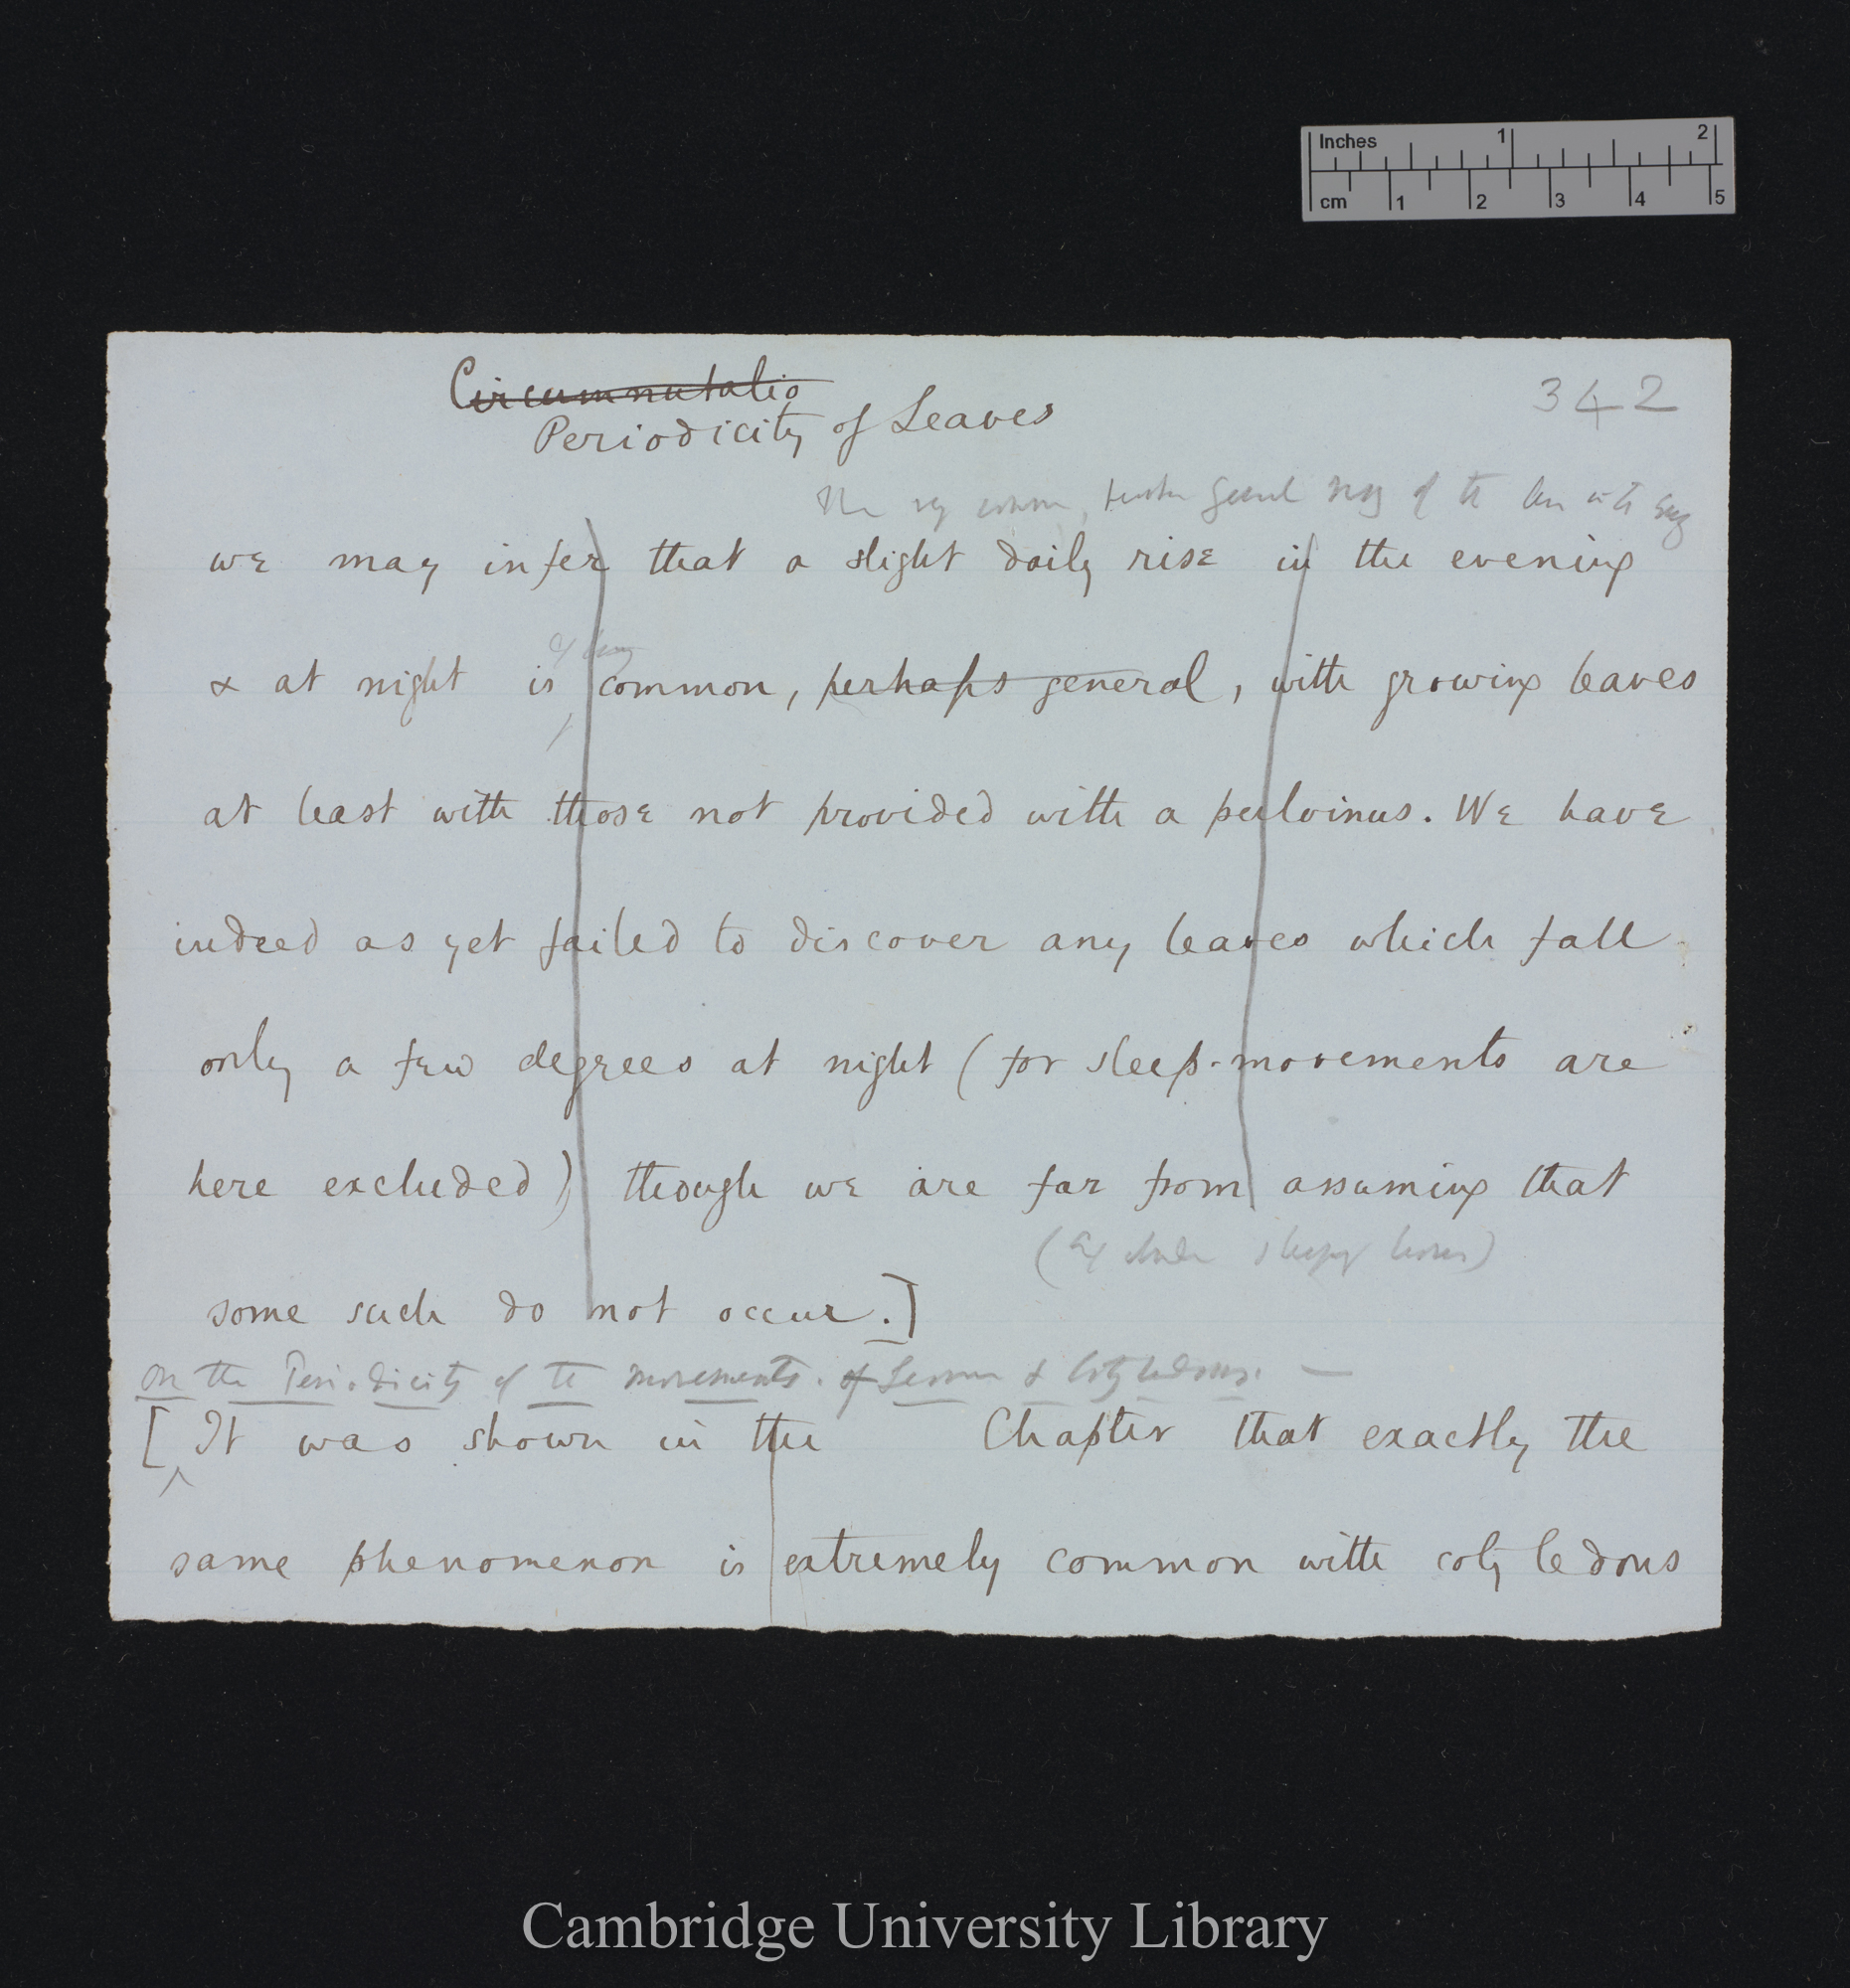 Inches 1 2
cm 1 2 3 4 5
Circumnutatio
Periodicity of Leaves
342
we may infer that a slight daily rise in the evening
& at night is common, perhaps general, with growing leaves
at least with those not provided with a pulvinus. We have
indeed as yet failed to discover any leaves which fall
only a few degrees at night (for sleep-movements are
here excluded) though we are far from assuming that
sleeping leaves)
some such do not occur.]
On the Periodicity of the movements of Leaves & Cotyledons. —
[It was shown in the Chapter that exactly the
same phenomenon is extremely common with cotyledons
Cambridge University Library